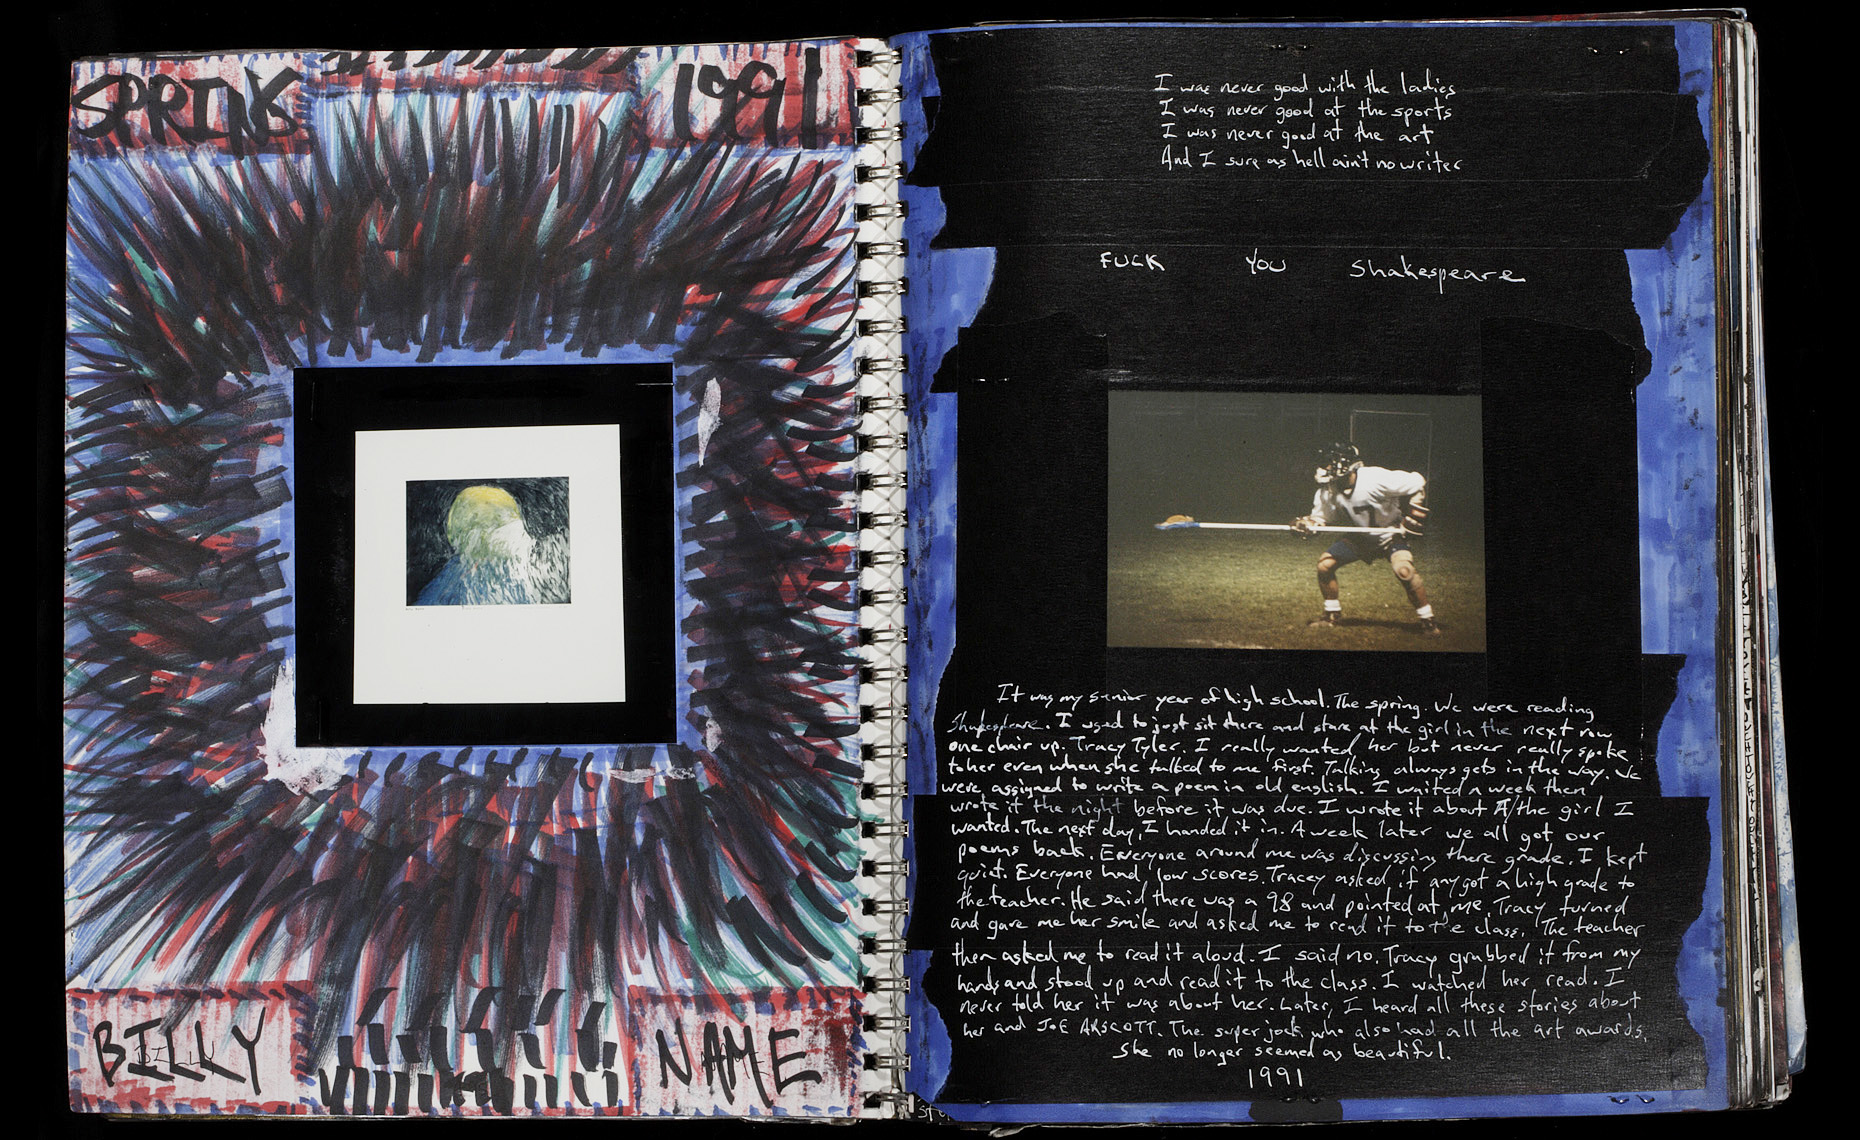 SPRING 1991
BILLY NAME
I was never good with the ladies
I was never good at the sports
I was never good at the art
And I sure as hell ain't no writer
FUCK YOU Shakespeare
It was my senior year of high school. The spring. We were reading
Shakespeare. I used to just sit there and stare at the girl in the next row
one chair up. Tracy Tyler. I really wanted her but never really spoke
to her even when she talked to me first. Talking always gets in the way. We
were assigned to write a poem in old english. I waited a week then
wrote it the night before it was due. I wrote it about the girl I
wanted. The next day, I handed it in. A week later we all got our
poems back. Everyone around me was discussing there grade. I kept
quiet. Everyone had low scores. Tracey asked if any got a high grade to
the teacher. He said there was a 98 and pointed at me. Tracy turned
and gave me her smile and asked me to read it to the class. The teacher
then asked me to read it aloud. I said no. Tracy grabbed it from my
hands and stood up and read it to the class. I watched her read. I
never told her it was about her. Later, I heard all these stories about
her and JOE ARSCOTT. The super jock who also had all the art awards.
She no longer seemed as beautiful.
1991